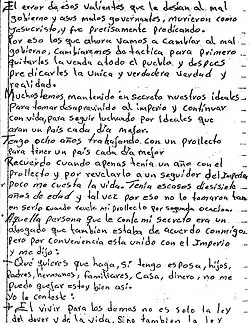 El error de esos valientes que le desian al mal
gobierno y asus malos governantes, murieron como
Jesucristo, y fue precisamente predicando.
Por eso los que ahora vamos a cambiar al mal
gobierno, cambiemos de tactica, para primero
quitarles la venda atodo el pueblo, y despues
predicarles la Unica y verdadera verdad y
realidad.
Muchos emos mantenido en secreto nuestros ideales
Para tomar desaparevido al imperio y continuar
con vida, para seguir luchando por Ideales que
aran un país cada día mejor.
Tengo ocho años trabajando con un prollecto
para tener un país cada día mejor
Recuerdo cuando apenas tenia un año con el
prollecto y por revelarlo a un seguidor del Imperio
poco me cuesta la vida. Tenia escasos diesisiete
años de edad y tal vez por eso no lo tomaron tan
en serio cuando revele mi prollecto por segunda ocacion.
Aquella persona que le conte mi secreto era un
abogado que tambien estaba de acuerdo conmigo
pero por conveniencia esta unido con el Imperio
y me dijo:
-Que quieres que haga, si tengo esposa, hijos,
Padres, hermanos, familiares, Casa, dinero, no me
puedo quejar estoy bien asi.
Yo le conteste:
- El vivir para los demas no es solo la ley
del dever y de la vida. Sino tambien la ley